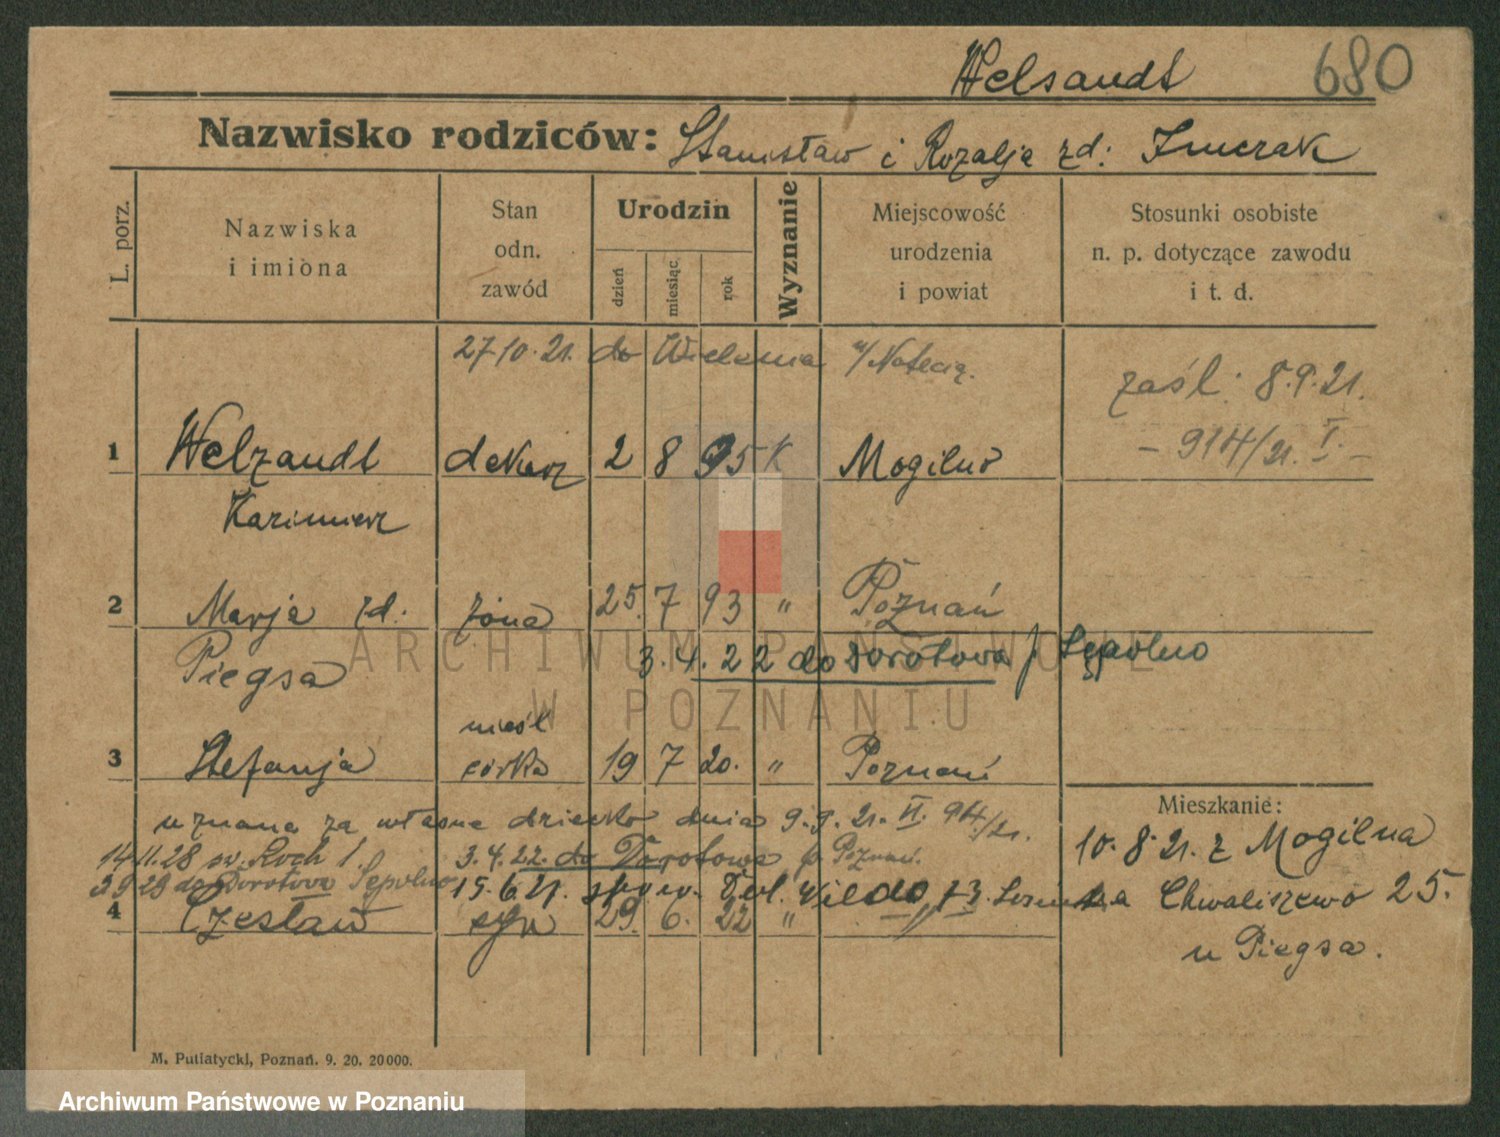 Welsandt 680
Nazwisko rodziców: Stanisław i Rozalja zd:
L. porz.
Nazwiska
i imiona
Stan
odn.
zawód
Urodzin
dzień
miesiąc
rok
Wyznanie
Miejscowość
urodzenia
i powiat
Stosunki osobiste
n. p. dotyczące zawodu
i t. d.
27 10. 21. do Wielenia n/Notecią.
zaśl: 8.9.21.
– 914/21. I. –
1 Welzandt dekarz 2 8 95 K Mogilno
Kazimierz
2 Marja zd. żona 25. 7 93 " Poznań
Piegsa
3. 4. 22 do Dorotowa p Sępolno
nieśl
3 Stefanja córka 19 7 20. " Poznań
uznana za własne dziecko dnia 9.9.21. VI. 914/21.
14 11. 28 św. Roch 1. 3.4.22. do Dorotowa p. Poznań.
do Dorotowa Sępolno 15.6.27.
4 Czesław syn 29. 6. 22 "
Mieszkanie:
10. 8. 21. z Mogilna
na Chwaliszewo 25.
u Piegsa.
M. Putiatycki, Poznań. 9. 20. 20000.
ARCHIWUM PAŃSTWOWE
W POZNANIU
Archiwum Państwowe w Poznaniu